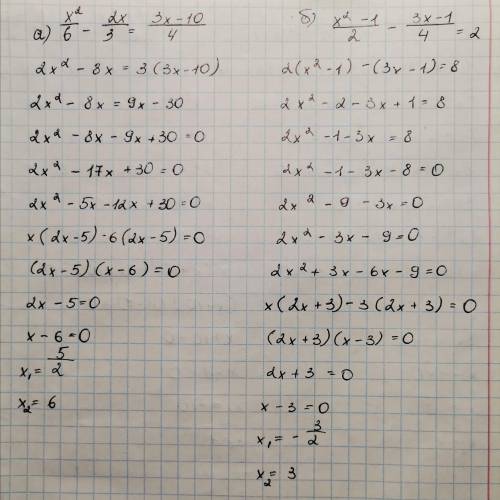 а) x²/6 - 2x/3 = 3x-10/4
2x² - 8x = 3(3x-10)
2x² - 8x = 9x - 30
2x² - 8x - 9x + 30 = 0
2x² - 17x + 30 = 0
2x² - 5x - 12x + 30 = 0
x(2x-5) - 6(2x-5) = 0
(2x-5)(x-6) = 0
2x - 5 = 0
x - 6 = 0
x₁ = 5/2
x₂ = 6
б) x²-1/2 - 3x-1/4 = 2
2(x²-1) - (3x-1) = 8
2x² - 2 - 3x + 1 = 8
2x² - 1 - 3x = 8
2x² - 1 - 3x - 8 = 0
2x² - 9 - 3x = 0
2x² - 3x - 9 = 0
2x² + 3x - 6x - 9 = 0
x(2x+3) - 3(2x+3) = 0
(2x+3)(x-3) = 0
2x + 3 = 0
x - 3 = 0
x₁ = - 3/2
x₂ = 3